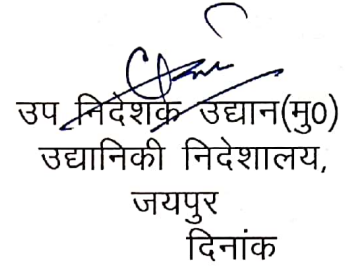 उप निदेशक उद्यान(मु0)
उद्यानिकी निदेशालय,
जयपुर
दिनांक